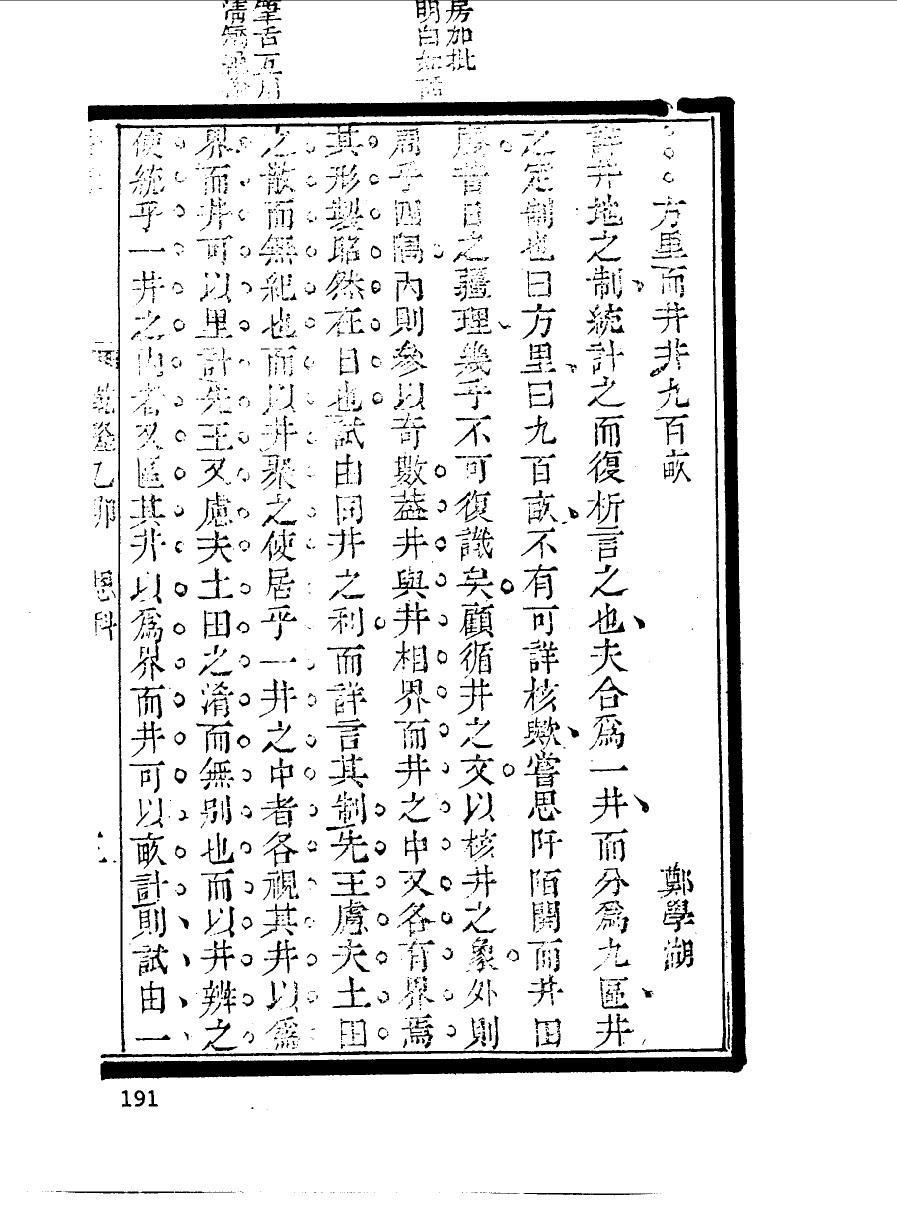 房加批
明白如話
筆舌互用
清
方里而井井九百畝
鄭學湖
詳井地之制統計之而復析言之也夫合爲一井而分爲九區井
之定制也曰方里曰九百畝不有可詳核歟嘗思阡陌開而井田
廢昔日之疆理幾乎不可復識矣顧循井之文以核井之象外則
周乎四隅內則參以奇數葢井與井相界而井之中又各有界焉
其形製昭然在目也試由同井之利而詳言其制先王慮夫土田
之散而無紀也而以井聚之使居乎一井之中者各視其井以爲
界而井可以里計先王又慮夫土田之淆而無別也而以井辨之
使統乎一井之內者又區其井以爲界而井可以畝計則試由一
乙卯 恩科
191